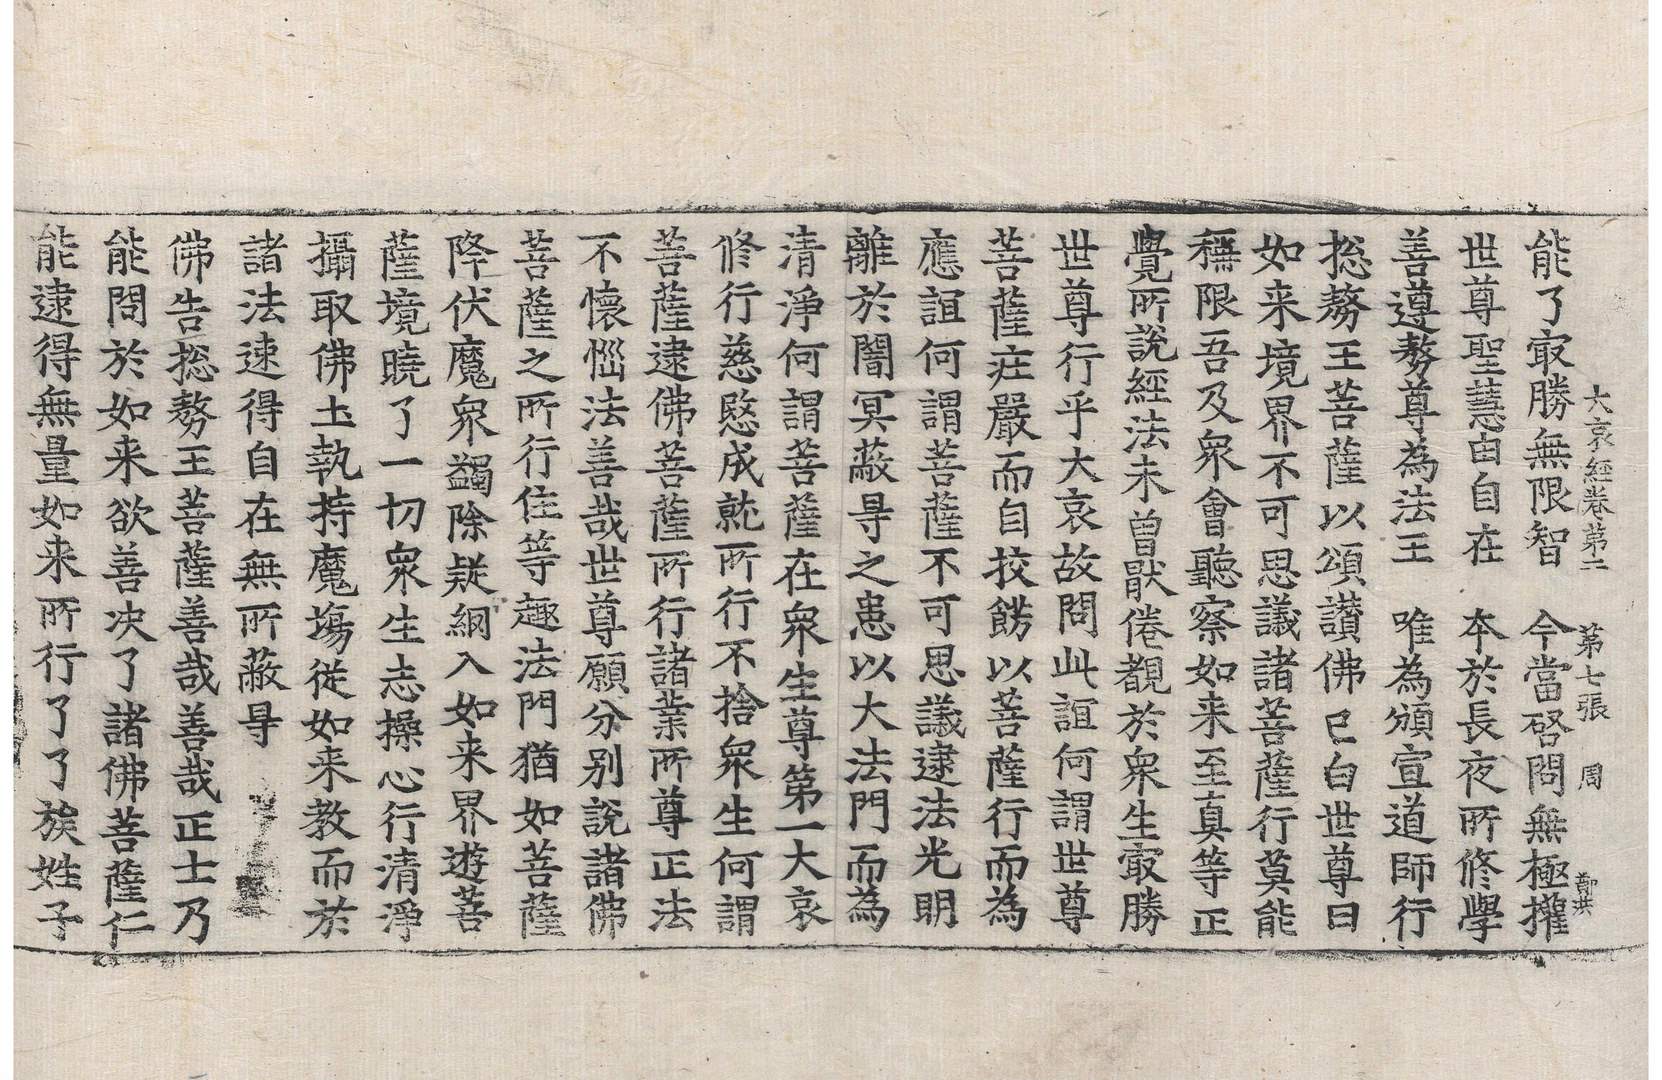 大哀經卷第二 第七張 周 鄭洪
能了㝡勝無限智 今當啓問無極㩲
世尊聖慧由自在 本於長夜所修學
善遵勢尊為法王 唯為頒宣道師行
捴勢王菩薩以頌讃佛已白世尊曰
如来境界不可思議諸菩薩行莫能
稱限吾及衆會聽察如来至真等正
覺所說經法未曾厭倦觀於衆生㝡勝
世尊行乎大哀故問此誼何謂世尊
菩薩莊嚴而自挍餝以菩薩行而為
應誼何謂菩薩不可思議逮法光明
離於闇冥蔽㝵之患以大法門而為
清淨何謂菩薩在衆生尊第一大哀
修行慈愍成就所行不捨衆生何謂
菩薩逮佛菩薩所行諸業所尊正法
不懷惱法善哉世尊願分别說諸佛
菩薩之所行住等趣法門猶如菩薩
降伏魔衆蠲除疑網入如来界遊菩
薩境曉了一切衆生志操心行清淨
攝取佛土執持魔場從如来教而於
諸法速得自在無所蔽㝵
佛告捴勢王菩薩善哉善哉正士乃
能問於如来欲善决了諸佛菩薩仁
能逮得無量如来所行了了族姓子